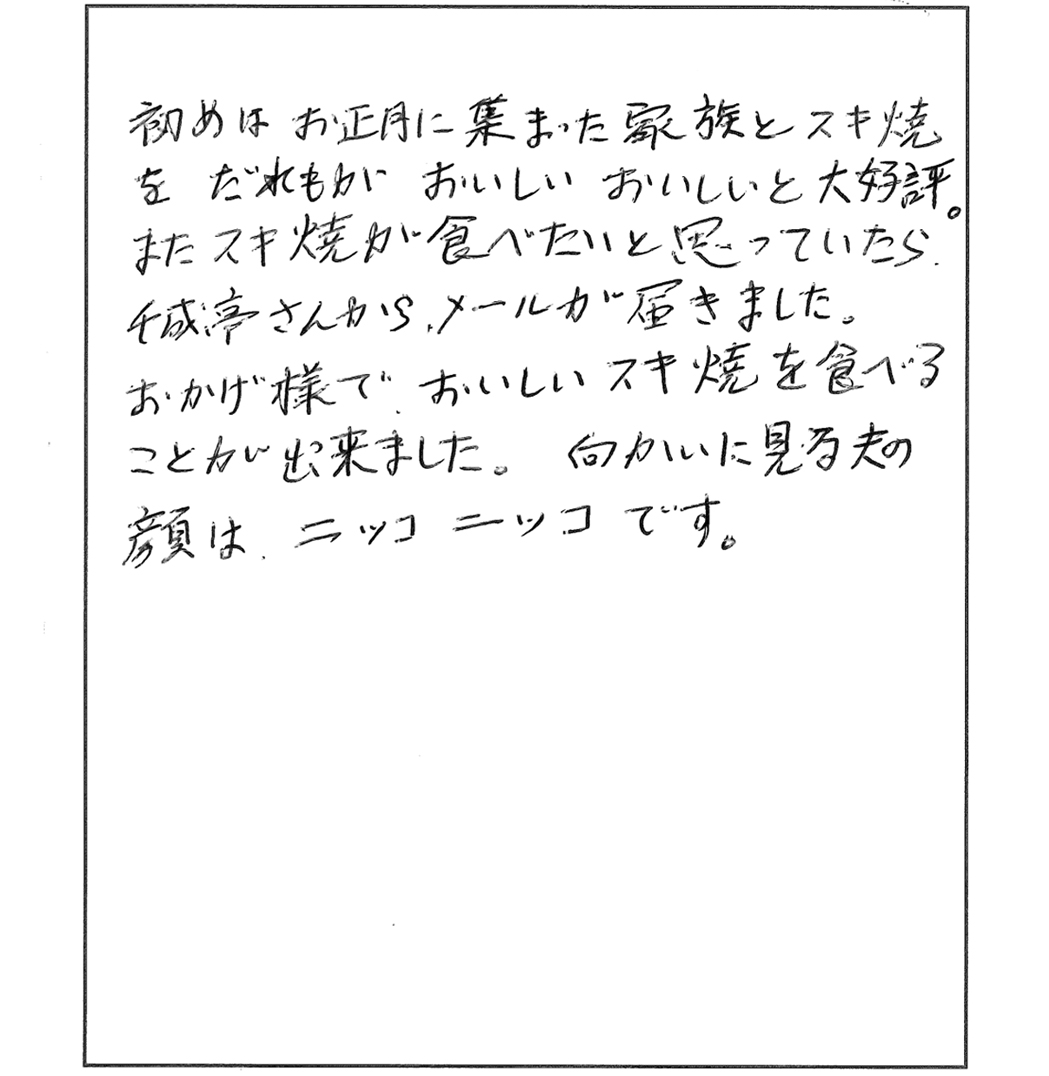 初めは お正月に集まった家族とスキ焼
を だれもが おいしい おいしいと大好評。
またスキ焼が食べたいと思っていたら、
千成亭さんから、メールが届きました。
おかげ様で、おいしいスキ焼を食べる
ことが出来ました。 向かいに見る夫の
顔は、ニッコ ニッコ です。